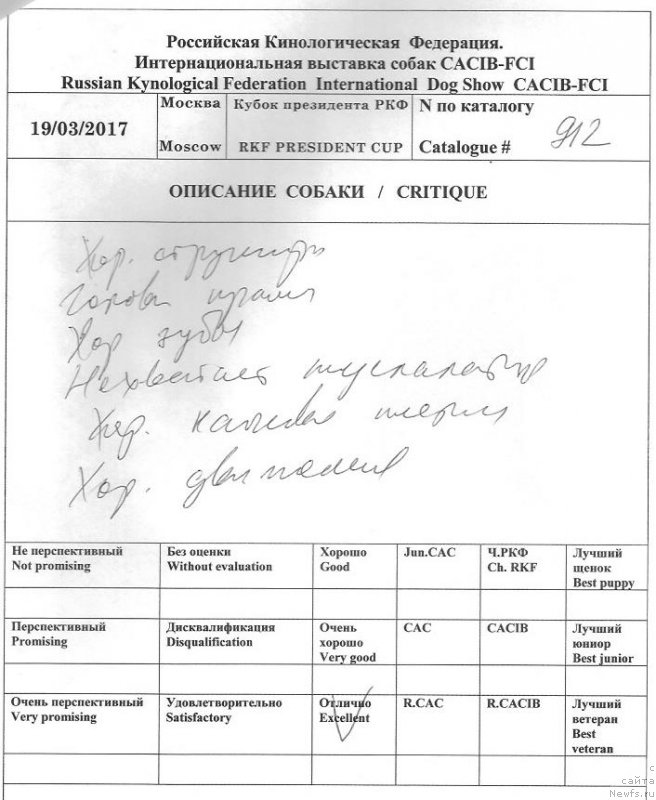 Российская Кинологическая Федерация.
Интернациональная выставка собак CACIB-FCI
Russian Kynological Federation International Dog Show CACIB-FCI
19/03/2017
Москва
Moscow
Кубок президента РКФ
RKF PRESIDENT CUP
N по каталогу
Catalogue #
912
ОПИСАНИЕ СОБАКИ / CRITIQUE
Хор. структура
Голова
Хор зубы
Нехватает мускалатур
Хор.
Хор. движения
Не перспективный
Not promising
Без оценки
Without evaluation
Хорошо
Good
Jun.CAC
Ч.РКФ
Ch. RKF
Лучший
щенок
Best puppy
Перспективный
Promising
Дисквалификация
Disqualification
Очень
хорошо
Very good
CAC
CACIB
Лучший
юниор
Best junior
Очень перспективный
Very promising
Удовлетворительно
Satisfactory
Отлично
Excellent
R.CAC
R.CACIB
Лучший
ветеран
Best
veteran
с
сайта
Newfs.ru